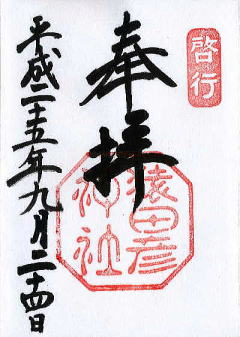 啓行
奉拝
猿田彦
神社
平成二十五年九月二十四日